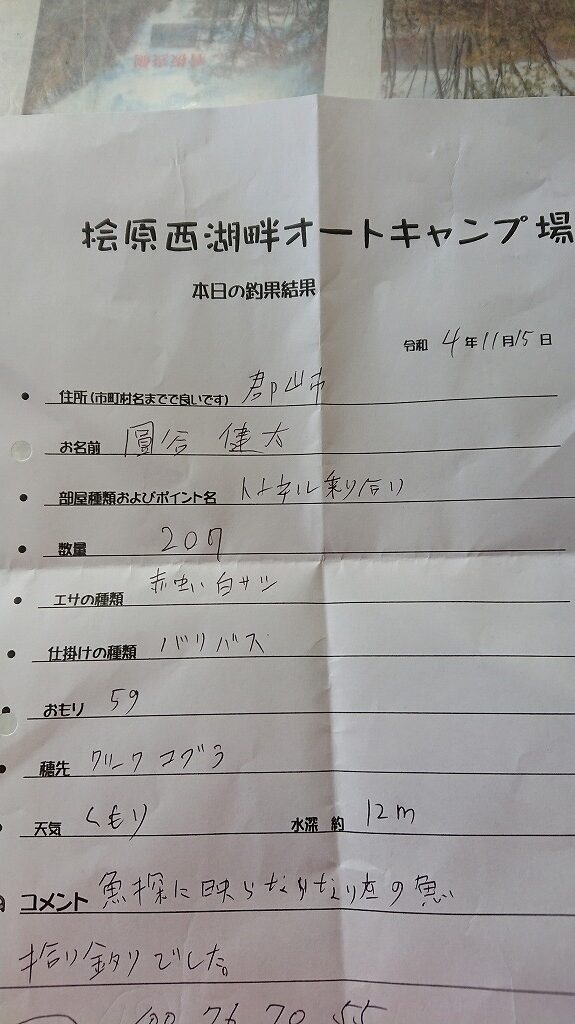 桧原西湖畔オートキャンプ場
本日の釣果結果
令和 4年11月15日
住所(市町村名までで良いです) 郡山市
お名前 圓谷 健太
部屋種類およびポイント名 トンネル乗り合い
数量 207
エサの種類 赤虫、白サシ
仕掛けの種類 バリバス
おもり 5g
穂先 クリーク コブラ
天気 くもり 水深 約 12m
コメント 魚探に映らなかなり 底の魚
拾い釣りでした。
100 76 70 55